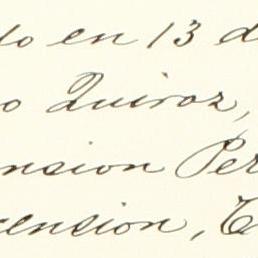 do en 13 d
o Quiroz,
nsion Per
cension, C